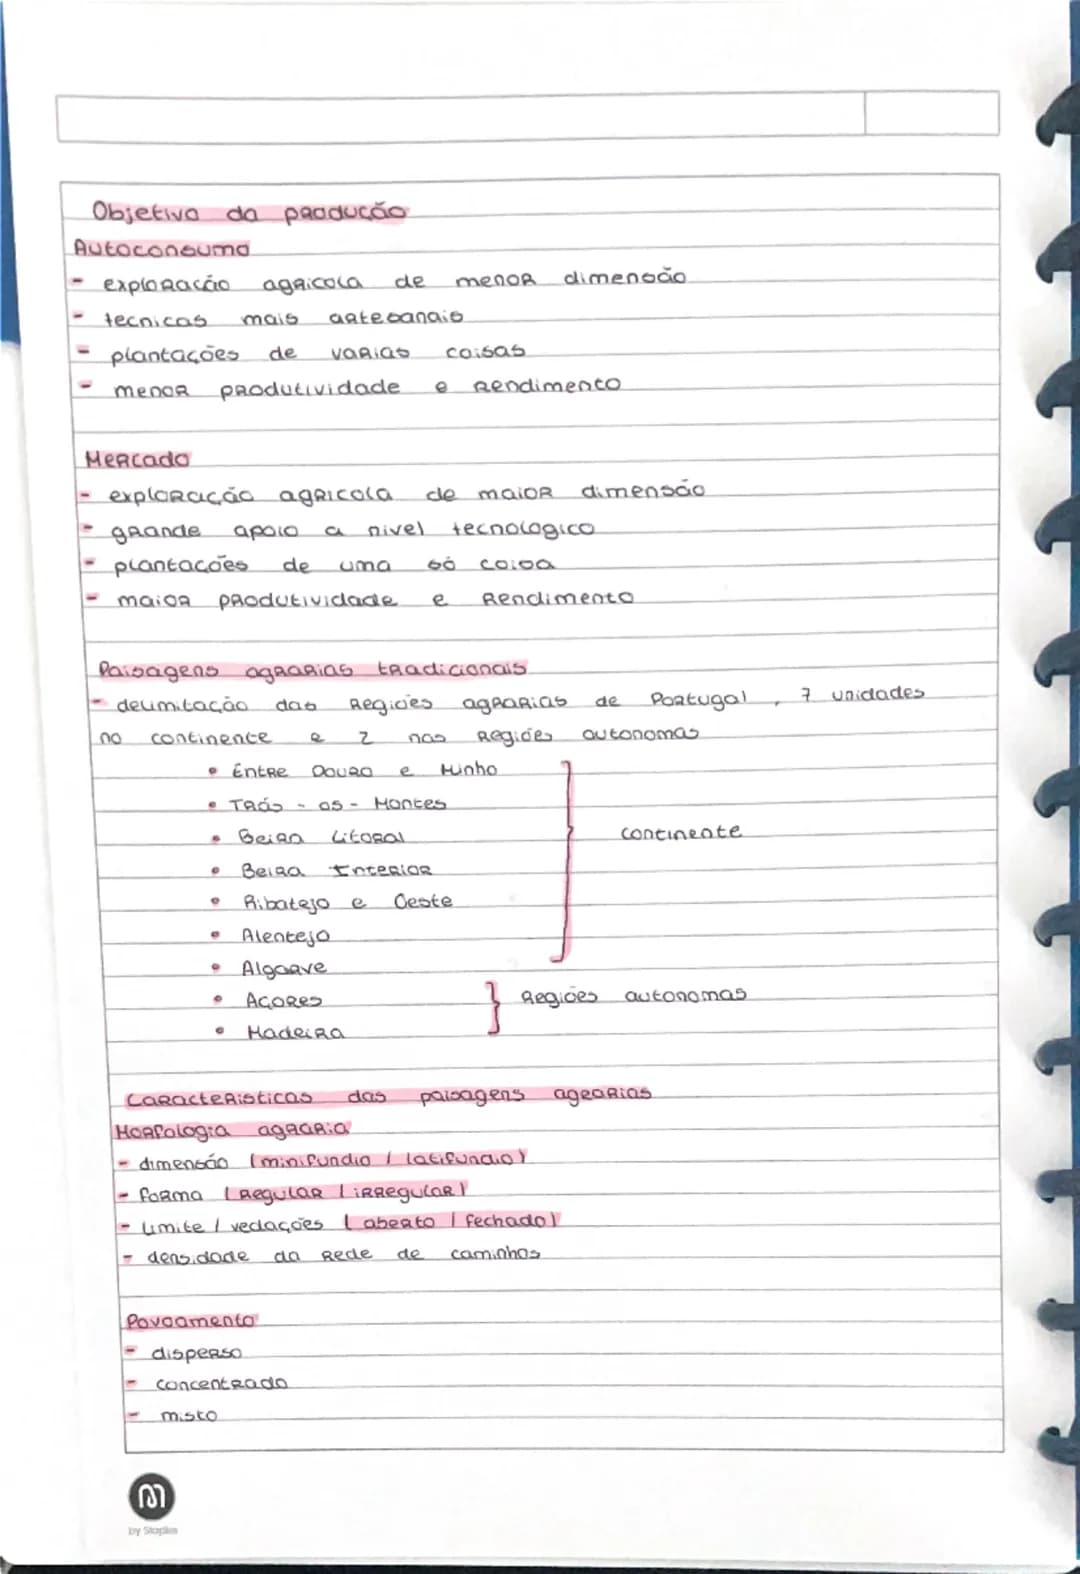 Objetivo da produção
Autoconsumo
- exploração agricola de menor dimensão
- tecnicas mais artesanais
- plantações de varias coisas
- menor produtividade e rendimento
Mercado
- exploração agricola de maior dimensão
- grande apoio a nivel tecnologico
- plantações de uma só coisa
- maior produtividade e Rendimento
Paisagens agrarias tradicionais
- delimitação das Regiões agrarias de Portugal, 7 unidades
no continente e 2 nas Regiões autonomas
• Entre Douro e Minho
• Trás-os-Montes
• Beira Litoral
continente
• Beira Interior
• Ribatejo e Oeste
• Alentejo
• Algarve
• Açores
Regiões autonomas
• Madeira
Caracteristicas das paisagens agrarias
Morfologia agraria
- dimensão (minifundio / latifundio)
- forma (Regular / irregular)
- limite / vedações (aberto / fechado)
- densidade da Rede de caminhos
Povoamento
- disperso
- concentrado
- misto
by Staples